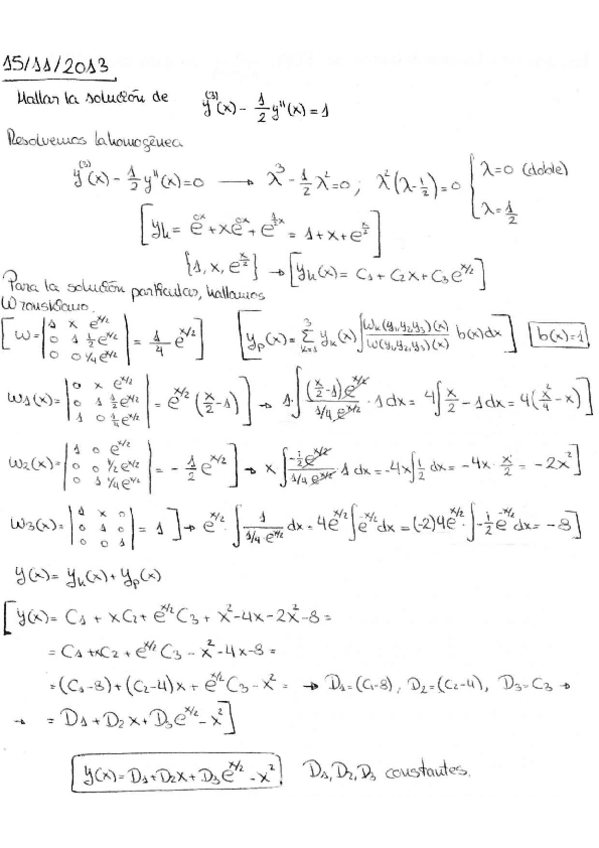 15/11/2013
Hallar la solución de y⁽³⁾(x) - 1/2 y''(x) = 1
Resolvemos la homogénea
y⁽³⁾(x) - 1/2 y''(x) = 0 → λ³ - 1/2 λ² = 0 ; λ²(λ - 1/2) = 0 { λ = 0 (doble) λ = 1/2
[yh = e^{0x} + xe^{0x} + e^{1/2 x} = 1 + x + e^{x/2}]
{1, x, e^{x/2}} → [yh(x) = C1 + C2x + C3e^{x/2}]
Para la solución particular, hallamos
Wronskiano.
[W = |1 x e^{x/2}; 0 1 1/2 e^{x/2}; 0 0 1/4 e^{x/2}| = 1/4 e^{x/2}] [yp(x) = Σ_{k=1}^{3} yk(x) ∫ Wk(y1,y2,y3)(x) / W(y1,y2,y3)(x) b(x)dx] b(x)=1
W1(x) = |0 x e^{x/2}; 0 1 1/2 e^{x/2}; 1 0 1/4 e^{x/2}| = e^{x/2}(x/2 - 1) → 1·∫ (x/2 - 1)e^{x/2} / 1/4 e^{x/2} · 1 dx = 4∫ x/2 - 1 dx = 4(x²/4 - x)]
W2(x) = |1 0 e^{x/2}; 0 0 1/2 e^{x/2}; 0 1 1/4 e^{x/2}| = -1/2 e^{x/2}] → x ∫ -1/2 e^{x/2} / 1/4 e^{x/2} 1 dx = -4x∫ 1/2 dx = -4x · x/2 = -2x²]
W3(x) = |1 x 0; 0 1 0; 0 0 1| = 1] → e^{x/2} · ∫ 1 / 1/4·e^{x/2} dx = 4e^{x/2}∫e^{-x/2} dx = (-2)4e^{x/2} · ∫-1/2 e^{-x/2} dx = -8]
y(x) = yh(x) + yp(x)
[y(x) = C1 + xC2 + e^{x/2}C3 + x² - 4x - 2x² - 8 =
= C1 + xC2 + e^{x/2}C3 - x² - 4x - 8 =
= (C1-8) + (C2-4)x + e^{x/2}C3 - x² = → D1 = (C1-8), D2 = (C2-4), D3 = C3 →
→ = D1 + D2x + D3e^{x/2} - x²]
y(x) = D1 + D2x + D3e^{x/2} - x² D1, D2, D3 constantes.